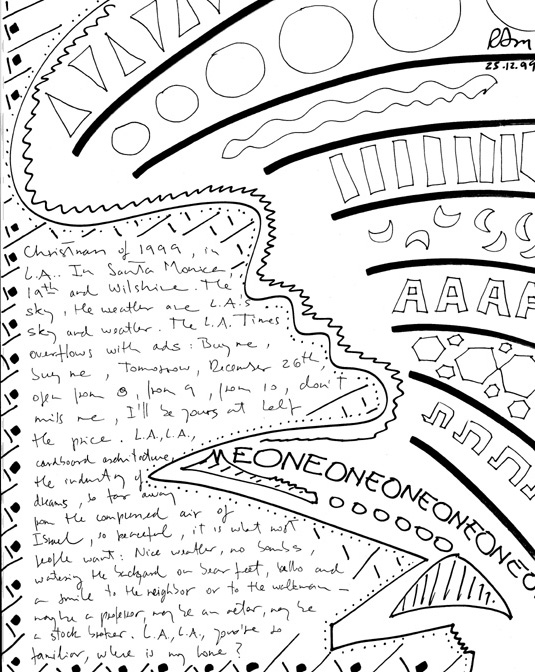 RAm
25.12.99
AAAA
Christmas of 1999, in
L.A.. In Santa Monica,
19th and Wilshire. The
sky, the weather are L.A.'s
sky and weather. The L.A. Times
overflows with ads: Buy me,
buy me, Tomorrow, December 26th
open from 8, from 9, from 10, don't
miss me, I'll be yours at half
the price. L.A., L.A.,
cardboard architecture,
the industry of
dreams, so far away
from the compressed air of
Israel, so peaceful, it is what most
people want: Nice weather, no bombs,
watering the backyard on bear feet, hello and
a smile to the neighbor or to the walkman –
maybe a professor, may be an actor, may be
a stock broker. L.A., L.A., you're so
familiar, where is my home?
MEONEONEONEONEONEONEO